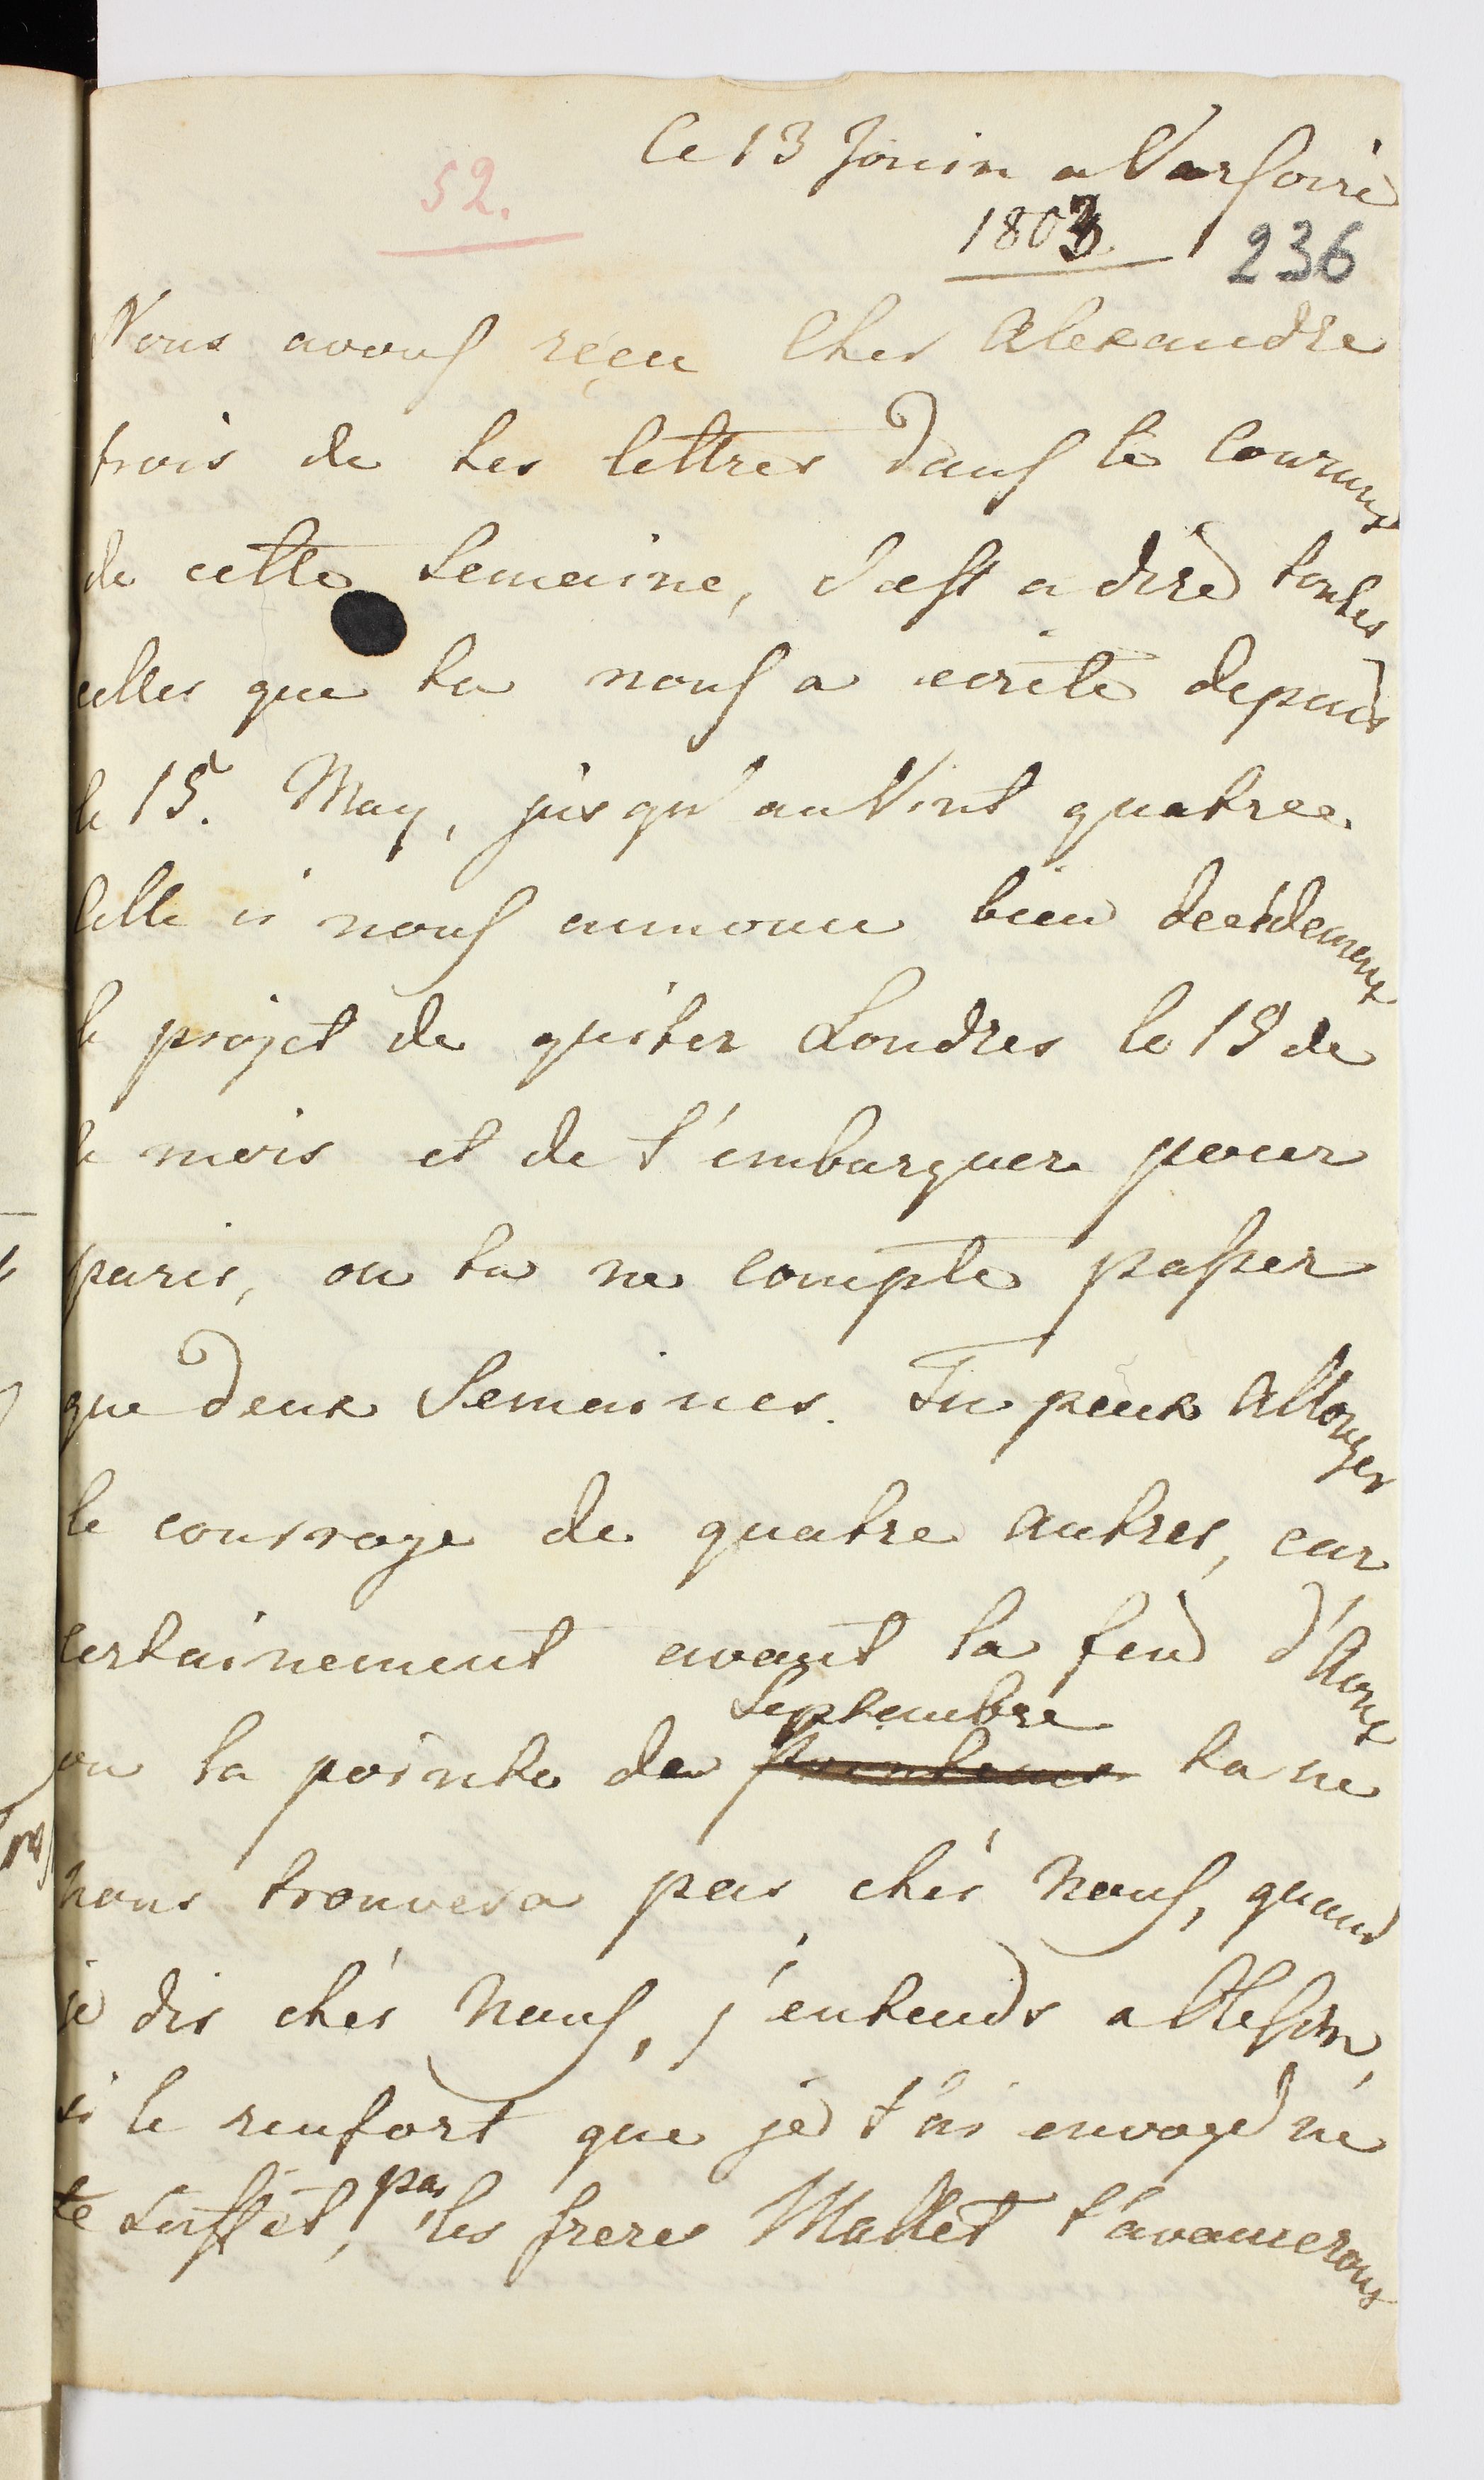 Ce 13 Jouin a Varsovie
52.
1803.
236
Nous avons réçu Cher Alexandre
trois de tes lettres dans le Courrant
de cette Semaine, C'est a dire toutes
celles que tu nous a ecrite depuis
le 15. May, jusqu'au Vint quatree
Celle ci nous annonce bien decidement
le projet de quiter Londres le 19 de
ce mois et de t'embarquer pour
paris, ou tu ne compte passer
que deux Semaines. Tu peux allonger
le courrage de quatre autres, car
certainement avant la fin d'Aout
ou la pointe de Septembre tu ne
nous trouvera pas chés Nous, quand
je dis chés Nous, j'entends a
si le renfort que je t'ai envoyé ne
te suffit pas, les freres Mallet t'avancerons